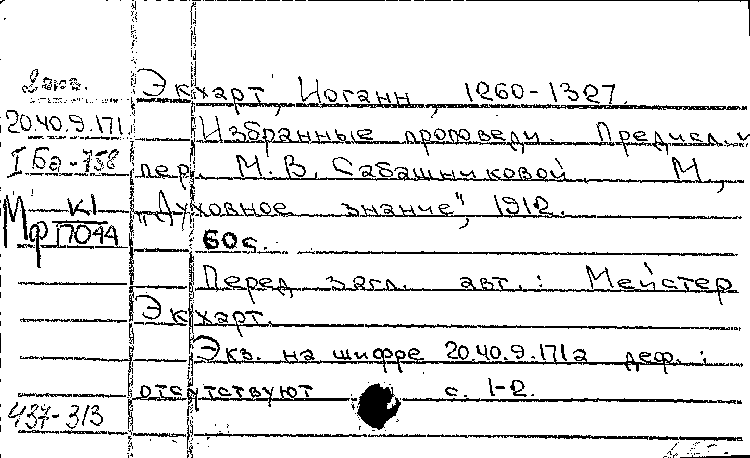 2 экз.
Экхарт, Иоганн, 1260-1327.
20.40.9.171
Избранные проповеди. Предисл. и
I Ба-758
пер. М.В. Сабашниковой. М.,
Мф К1 17044
"Духовное знание", 1912.
60с.
Перед загл. авт.: Мейстер
Экхарт.
Экз. на шифре 20.40.9.171а деф.:
отсутствуют с. 1-2.
437-313